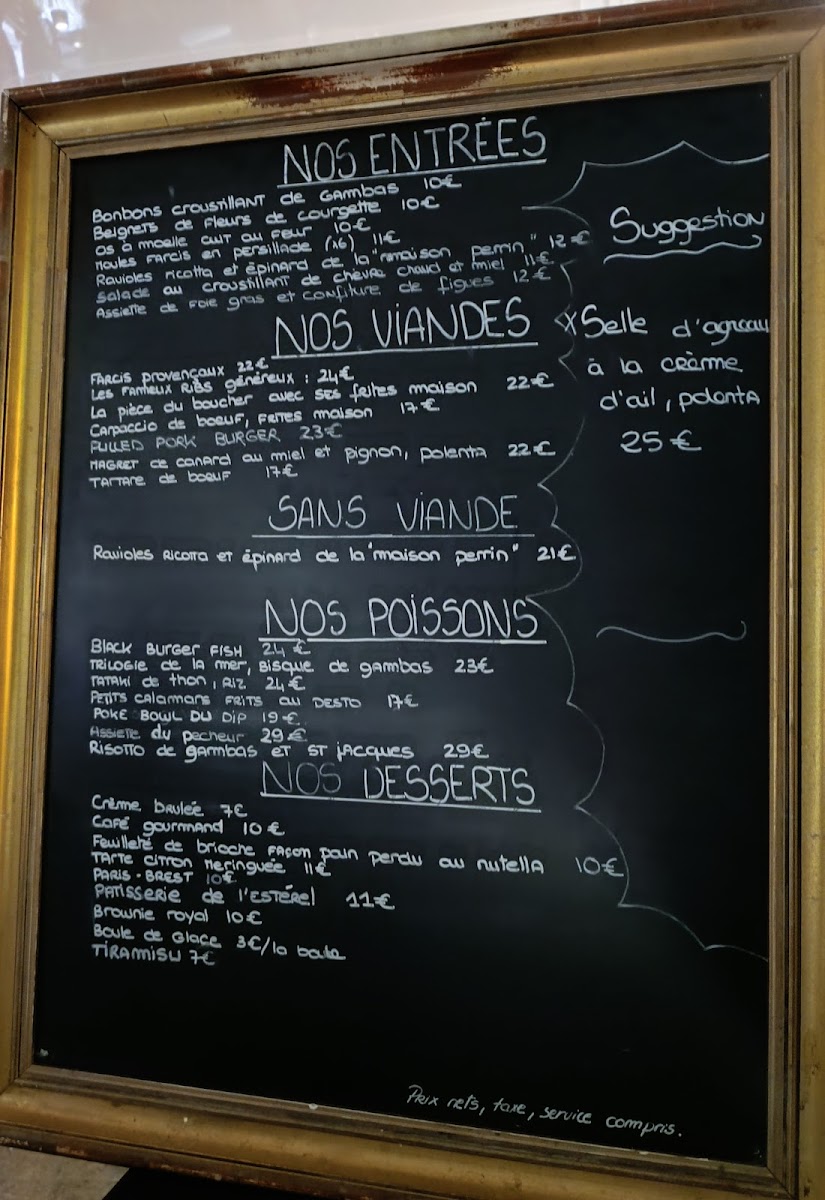 NOS ENTRÉES
Bonbons croustillant de Gambas 10€
Beignets de Fleurs de courgette 10€
Os à moelle cuit au Feur 10€
Moules Farcis en persillade (x6) 11€
Ravioles ricotta et épinard de la "maison perrin" 12€
Salade au croustillant de chèvre chaud et miel 11€
Assiette de Foie gras et confiture de figues 12€
NOS VIANDES
Farcis provençaux 22€
Les Fameux Ribs généreux : 24€
La pièce du boucher avec ses frites maison 22€
Carpaccio de boeuf, Frites maison 17€
PULLED PORK BURGER 23€
Magret de canard au miel et pignon, polenta 22€
Tartare de boeuf 17€
SANS VIANDE
Ravioles Ricotta et épinard de la "maison perrin" 21€
NOS POISSONS
Black Burger Fish 24€
Trilogie de la mer, Bisque de gambas 23€
Tataki de thon, Riz 24€
Petits calamars frits au DESTO 17€
POKE BOWL DU DIP 19€
Assiette du pecheur 29€
Risotto de gambas et St Jacques 29€
NOS DESSERTS
Crème brulée 7€
Café gourmand 10€
Feuilleté de brioche Façon pain perdu au nutella 10€
Tarte citron meringuée 11€
PARIS-BREST 10€
PATISSERIE de l'ESTÉREL 11€
Brownie royal 10€
Boule de Glace 3€/la boule
TIRAMISU 7€
Suggestion
x Selle d'agneau
à la crème
d'ail, polenta
25€
Prix nets, taxe, service compris.